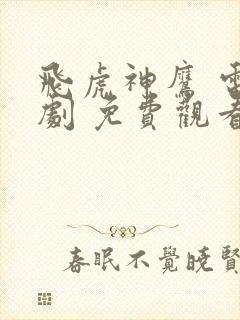 飛虎神鷹 電
劇 免費觀看
春眠不覺曉賢